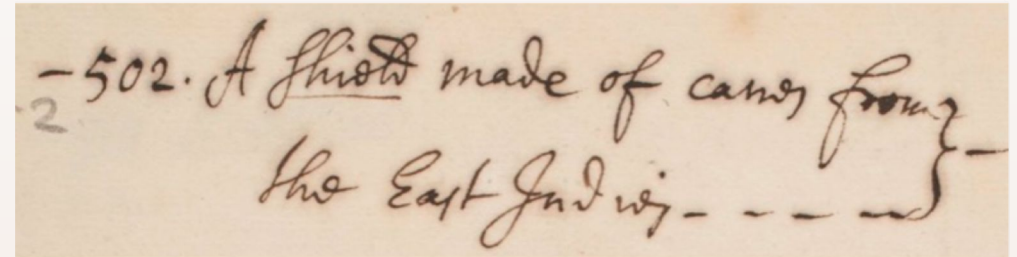 -502. A Shield made of canes from } -
2
the East Indies - - - -